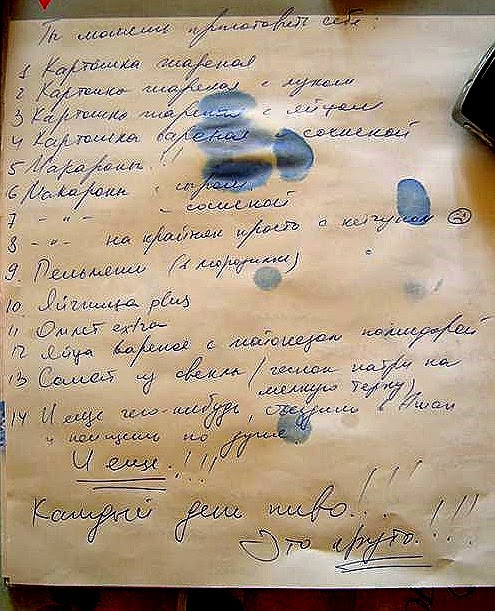 Ты можешь приготовить себе:
1 Картошка жареная
2 Картошка жареная с луком
3 Картошка жареная с яйцом
4 Картошка вареная сосиской
5 Макароны!!
6 Макароны с сыром
7 -"- -"- - сосиской
8 -"- -"- на крайняк просто с кетчупом
9 Пельмени (в морозилке)
10. Яичница plus
11 Омлет extra
12 Яйца вареное с майонезом помидорой
13 Салат из свеклы (чеснок натри на
мелкую терку)
14 И еще чего-нибудь, сходишь в
и поищешь по душе.
И еще!!!!
Каждый день пиво...!!!
Это круто...!!!